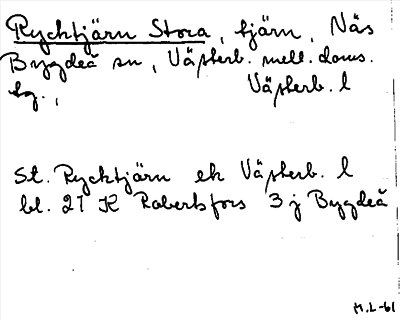 Rycktjärn Stora, tjärn, Näs
Bygdeå sn, Västerb. mell. doms.
tg., Västerb. l
St. Rycktjärn ek Västerb. l
bl. 21 K Robertsfors 3 j Bygdeå
M.L-61